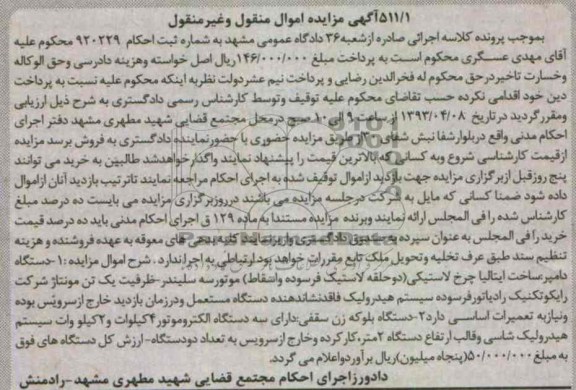 ۵۱۱/۱آگهی مزایده اموال منقول وغیرمنقول
بموجب پرونده کلاسه اجرائی صادره ازشعبه۳۶ دادگاه عمومی مشهد به شماره ثبت احکام ۹۲۰۲۲۹ محکوم علیه
آقای مهدی عسگری محکوم است به پرداخت مبلغ ۱۴۶/۰۰۰/۰۰۰ریال اصل خواسته وهزینه دادرسی وحق الوکاله
وخسارت تاخیردرحق محکوم له فخرالدین رضایی و پرداخت نیم عشردولت نظربه اینکه محکوم علیه نسبت به پرداخت
دین خود اقدامی نکرده حسب تقاضای محکوم علیه توقیف وتوسط کارشناس رسمی دادگستری به شرح ذیل ارزیابی
ومقررگردید در تاریخ ۱۳۹۳/۰۴/۰۸ ازساعت ۹ الی ۱۰ صبح درمحل مجتمع قضایی شهید مطهری مشهد دفتر اجرای
احکام مدنی واقع دربلوارشفا نبش شفای از طریق مزایده حضوری با حضورنماینده دادگستری به فروش برسد مزایده
ازقیمت کارشناسی شروع وبه کسانی که بالاترین قیمت را پیشنهاد نمایند واگذارخواهدشد طالبین به خرید می توانند
پنج روزقبل ازبرگزاری مزایده جهت بازدید ازاموال توقیف شده به اجرای احکام مراجعه نمایند تاترتیب بازدید آنان ازاموال
داده شود ضمنا کسانی که مایل به شرکت درجلسه مزایده می باشند درروزبرگزاری مزایده می بایست ده درصد مبلغ
کارشناس شده را فی المجلس ارائه نمایند وبرنده مزایده مستندا به ماده ۱۲۹ ق اجرای احکام مدنی باید ده درصد قیمت
خرید را فی المجلس به عنوان سپرده به صندوق دادگستری واریزنماید کلیه بدهی های معوقه به عهده فروشنده و هزینه
تنظیم سند طبق عرف تخلیه و تحویل ملک تابع مقررات خواهد بودارتباطی به اجراندارد. شرح اموال مزایده :۱-دستگاه
دامپرساخت ایتالیا چرخ لاستیکی(دوحلقه لاستیک فرسوده واسقاط) موتورسه سلیندر-ظرفیت یک تن مونتاژ شرکت
رایکوتکنیک رادیاتورفرسوده سیستم هیدرولیک فاقدنشاندهنده دستگاه مستعمل ودرزمان بازدید خارج ازسرویس بوده
ونیازبه تعمیرات اساسی دارد۲-دستگاه بلوکه زن سقفی:دارای سه دستگاه الکتروموتور۴کیلوات و۲کیلو وات سیستم
هیدرولیک شاسی وقالب ارتفاع دستگاه ۲متر،کارکرده وخارج ازسرویس به تعداد دودستگاه-ارزش کل دستگاه های فوق
به مبلغ ۵۰/۰۰۰/۰۰۰(پنجاه میلیون)ریال برآوردواعلام می گردد.
دادورزاجرای احکام مجتمع قضایی شهید مطهری مشهد-رادمنش